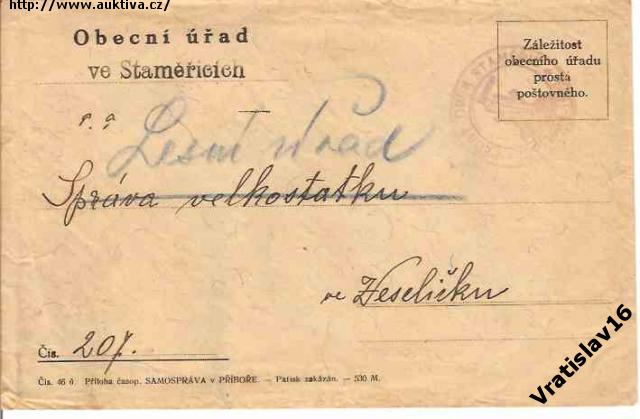 http://www.auktiva.cz/
Obecní úřad
ve Staměřicích
Záležitost
obecního úřadu
prostá
poštovného.
Lesní úřad
Správa velkostatku
ve Veselíčku
Čís. 207.
Čís. 46 d Příloha časop. SAMOSPRÁVA v PŘÍBOŘE. — Patisk zakázán. — 530 M.
Vratislav16